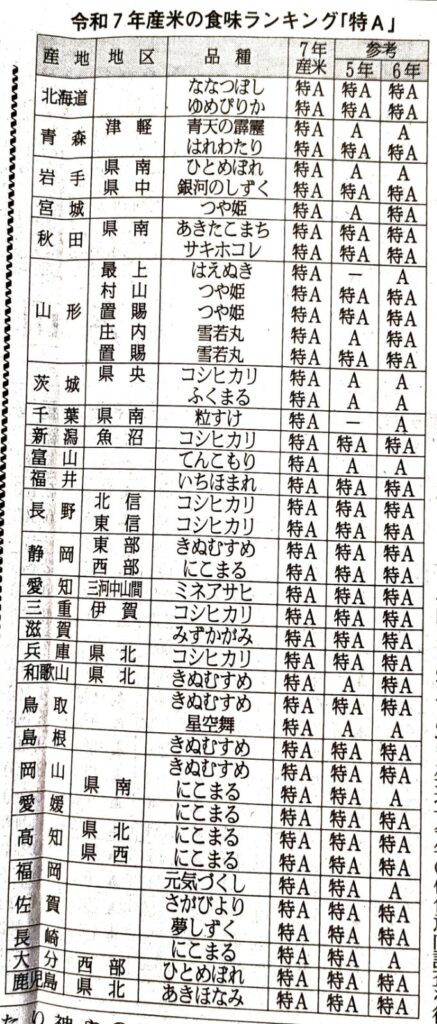 令和7年産米の食味ランキング「特A」
産地 地区 品種 7年産米 参考 5年 6年
北海道 ななつぼし 特A 特A 特A
ゆめぴりか 特A 特A 特A
青森 津軽 青天の霹靂 特A A A
はれわたり 特A 特A 特A
岩手 県南 ひとめぼれ 特A A A
県中 銀河のしずく 特A 特A 特A
宮城 つや姫 特A A 特A
秋田 県南 あきたこまち 特A 特A 特A
サキホコレ 特A 特A 特A
山形 最上 はえぬき 特A － A
村山 つや姫 特A 特A 特A
置賜 つや姫 特A 特A 特A
庄内 雪若丸 特A A 特A
置賜 雪若丸 特A 特A 特A
茨城 県央 コシヒカリ 特A A A
ふくまる 特A A A
千葉 県南 粒すけ 特A － A
新潟 魚沼 コシヒカリ 特A 特A 特A
富山 てんこもり 特A A A
福井 いちほまれ 特A 特A 特A
長野 北信 コシヒカリ 特A 特A 特A
東信 コシヒカリ 特A 特A 特A
静岡 東部 きぬむすめ 特A 特A 特A
西部 にこまる 特A 特A 特A
愛知 三河中山間 ミネアサヒ 特A 特A 特A
三重 伊賀 コシヒカリ 特A 特A 特A
滋賀 みずかがみ 特A 特A 特A
兵庫 県北 コシヒカリ 特A 特A 特A
和歌山 県北 きぬむすめ 特A A 特A
鳥取 きぬむすめ 特A 特A 特A
星空舞 特A A A
島根 きぬむすめ 特A 特A 特A
岡山 きぬむすめ 特A 特A 特A
県南 にこまる 特A 特A A
愛媛 にこまる 特A 特A 特A
高知 県北 にこまる 特A 特A 特A
県西 にこまる 特A 特A 特A
福岡 元気づくし 特A 特A A
佐賀 さがびより 特A 特A 特A
夢しずく 特A 特A 特A
長崎 にこまる 特A 特A A
大分 西部 ひとめぼれ 特A 特A 特A
鹿児島 県北 あきほなみ 特A 特A 特A